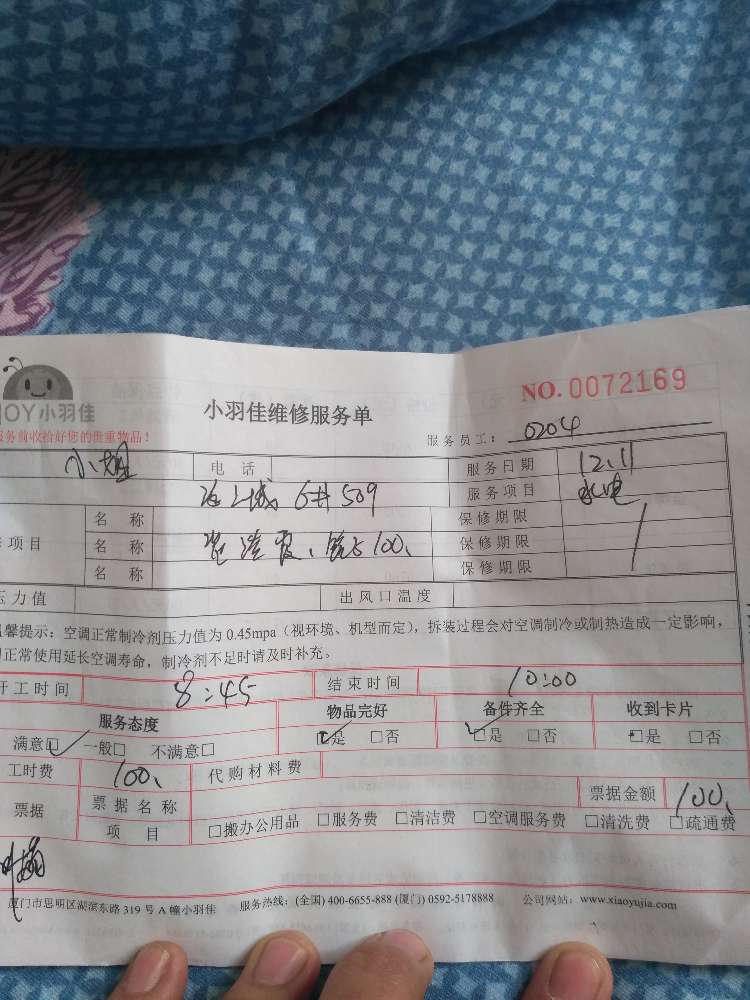 NO. 0072169
JOY小羽佳
小羽佳维修服务单
服务前收恰好您的贵重物品!
服务员工: 0204
小姐 电话 服务日期 12.11
6# 509 服务项目 水电
名称 保修期限
项目 名称 100、 保修期限
名称 保修期限
压力值 出风口温度
温馨提示:空调正常制冷剂压力值为 0.45mpa(视环境、机型而定),拆装过程会对空调制冷或制热造成一定影响,
正常使用延长空调寿命,制冷剂不足时请及时补充。
开工时间 8:45 结束时间 10:00
服务态度 物品完好 备件齐全 收到卡片
满意☑ 一般□ 不满意□ ☑是 □否 ☑是 □否 □是 □否
工时费 100、 代购材料费
票据 票据名称 票据金额 100、
项目 □搬办公用品 □服务费 □清洁费 □空调服务费 □清洗费 □疏通费
厦门市思明区湖滨东路 319 号 A 幢小羽佳 服务热线:(全国) 400-6655-888 (厦门) 0592-5178888 公司网站:www.xiaoyujia.com